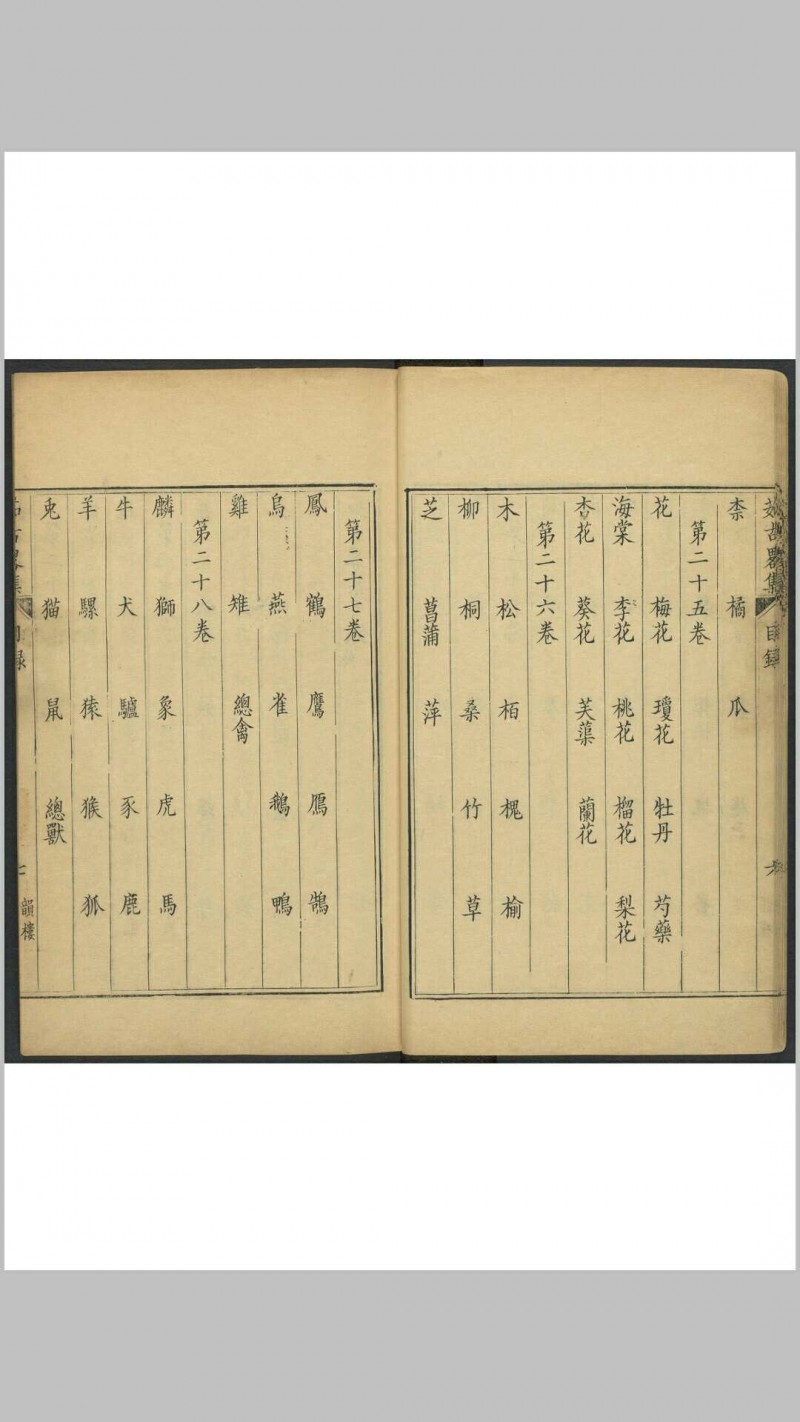 柰 橘 瓜
第二十五卷
花 梅花 瓊花 牡丹 芍藥
海棠 李花 桃花 榴花 梨花
杏花 葵花 芙蕖 蘭花
第二十六卷
木 松 栢 槐 榆
柳 桐 桑 竹 草
芝 菖蒲 萍
第二十七卷
鳳 鶴 鷹 鴈 鵠
烏 燕 雀 鵝 鴨
雞 雉 總禽
第二十八卷
麟 獅 象 虎 馬
牛 犬 驢 豕 鹿
羊 騾 猿 猴 狐
兎 猫 鼠 總獸
韻樓